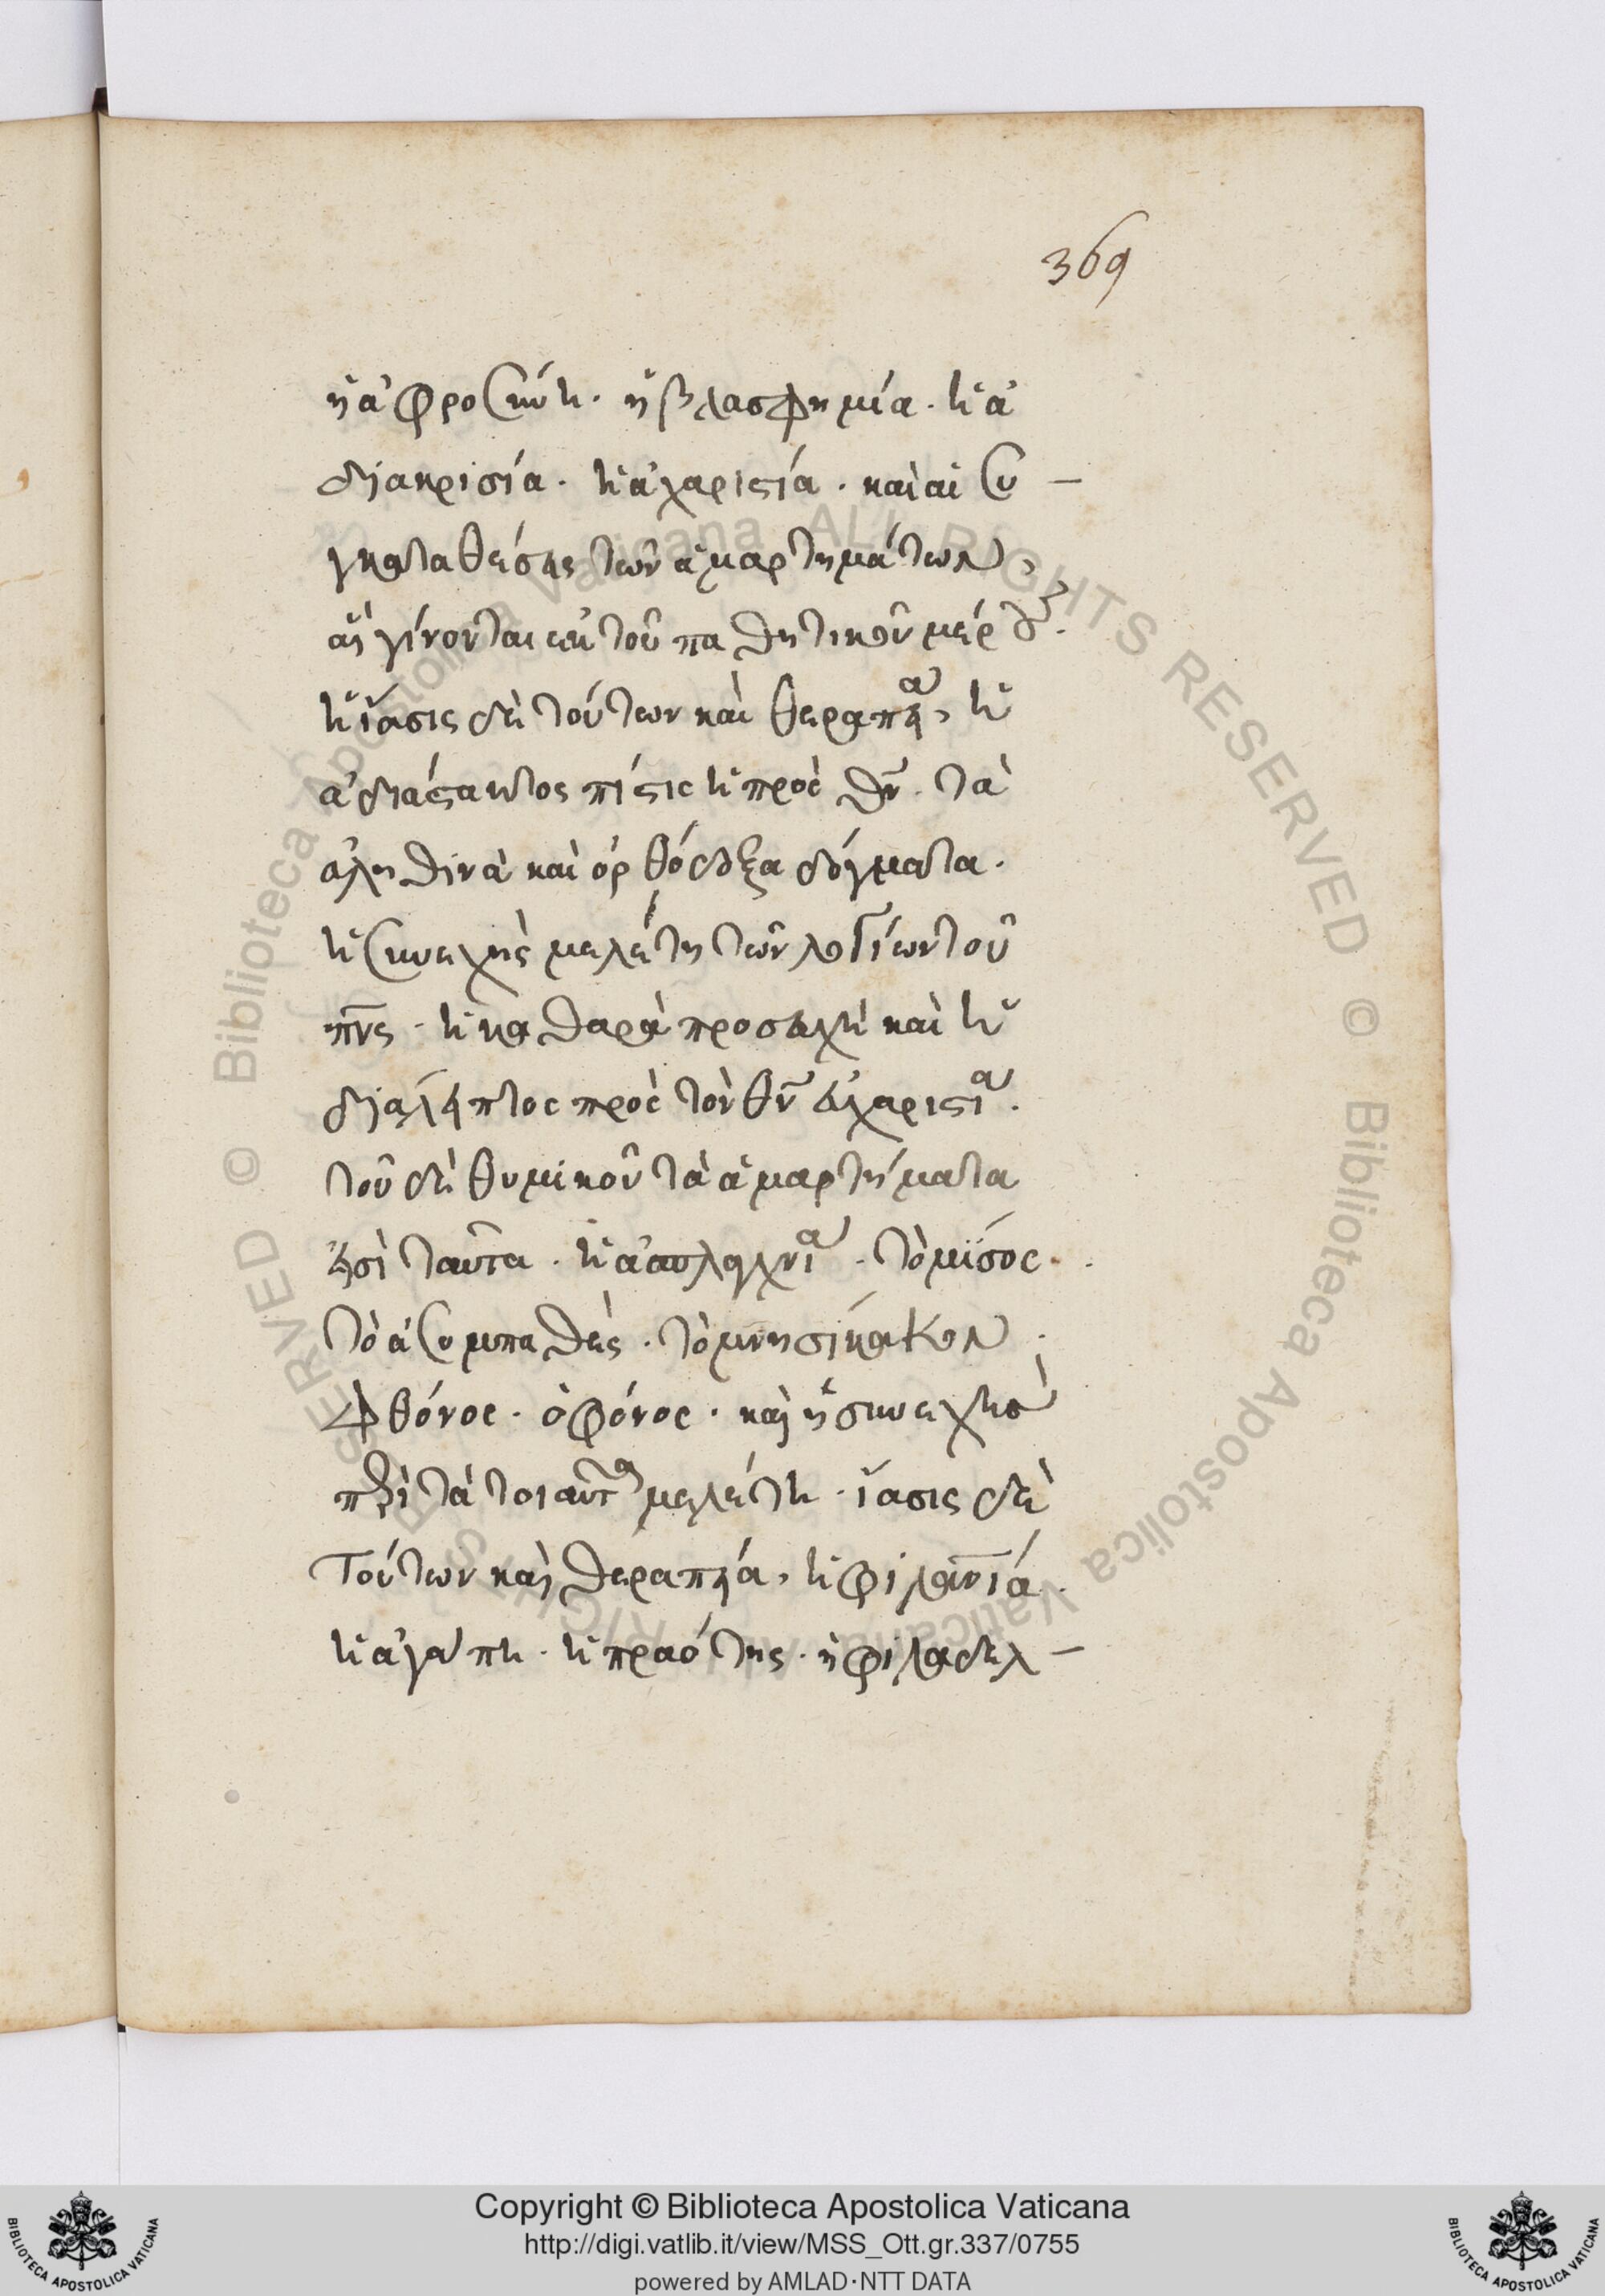 369
ἡ ἀφροσύνη. ἡ βλασφημία. ἡ ἀ
διακρισία. ἡ ἀχαριστία. καὶ αἱ συ-
γκαταθέσεις τῶν ἁμαρτημάτων,
αἳ γίνονται ἐκ τοῦ παθητικοῦ μέρους.
ἡ ἴασις δὲ τούτων καὶ θεραπεία, ἡ
ἀδιάστακτος πίστις ἡ πρὸς θν. τὰ
ἀληθινὰ καὶ ὀρθόδοξα δόγματα.
ἡ συνεχὴς μελέτη τῶν λογίων τοῦ
πνς. ἡ καθαρὰ προσευχὴ καὶ ἡ
διάλειπτος πρὸς τὸν θν εὐχαριστία.
τοῦ δὲ θυμικοῦ τὰ ἁμαρτήματα
εἰσὶ ταῦτα. ἡ ἀσπλαγχνία. τὸ μίσος.
τὸ ἀσυμπαθές. τὸ μνησίκακον.
φθόνος. ὁ φόνος. καὶ ἡ συνεχὴς
περὶ τὰ τοιαῦτα μελέτη. ἴασις δὲ
τούτων καὶ θεραπεία, ἡ φιλανία.
ἡ ἀγάπη. ἡ πραότης. ἡ φιλαδελ-
Copyright © Biblioteca Apostolica Vaticana
http://digi.vatlib.it/view/MSS_Ott.gr.337/0755
powered by AMLAD·NTT DATA
BIBLIOTECA APOSTOLICA VATICANA
BIBLIOTECA APOSTOLICA VATICANA
© Biblioteca Apostolica Vaticana ALL RIGHTS RESERVED © Biblioteca Apostolica Vaticana ALL RIGHTS RESERVED